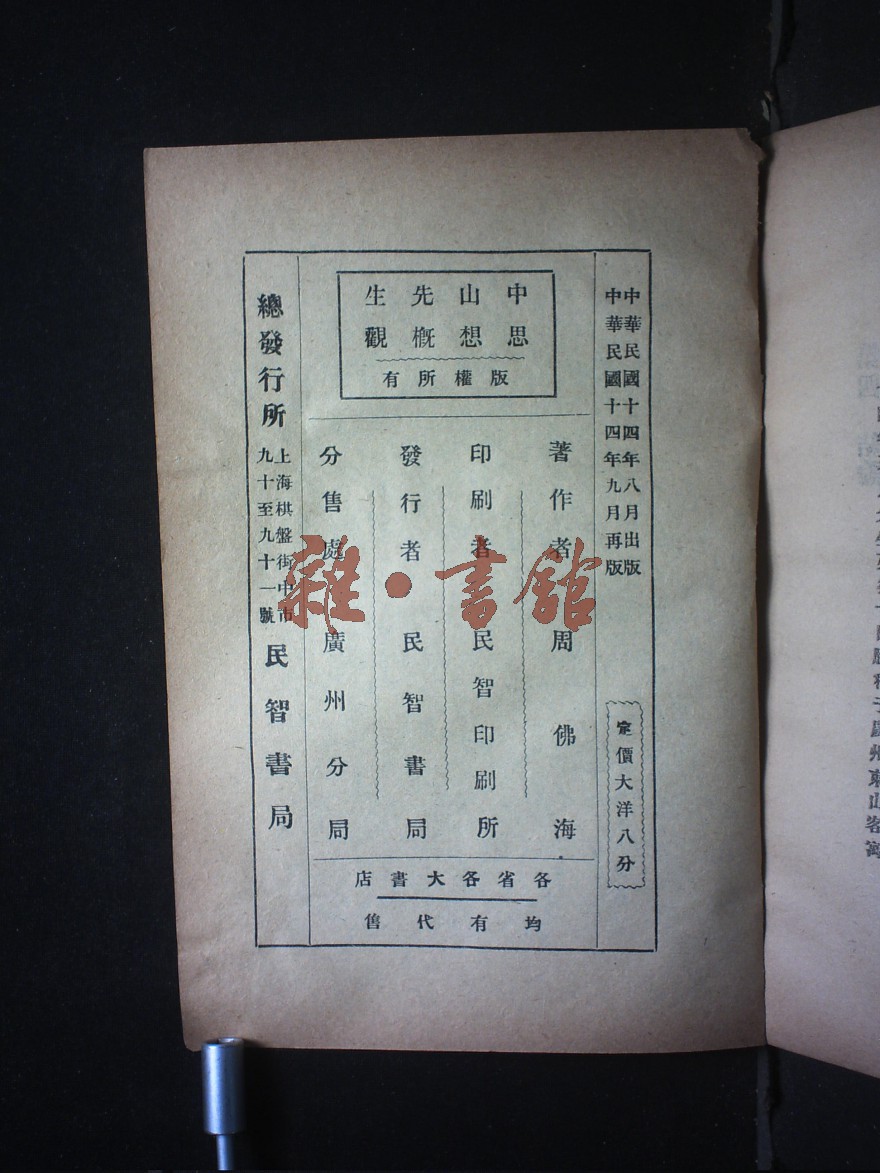 中華民國十四年八月出版
中華民國十四年九月再版
定價大洋八分
中山先生
思想概觀
版權所有
著作者 周佛海
印刷者 民智印刷所
發行者 民智書局
分售處 廣州分局
各省各大書店
均有代售
總發行所
上海棋盤街中市
九十至九十一號
民智書局
雜·書館